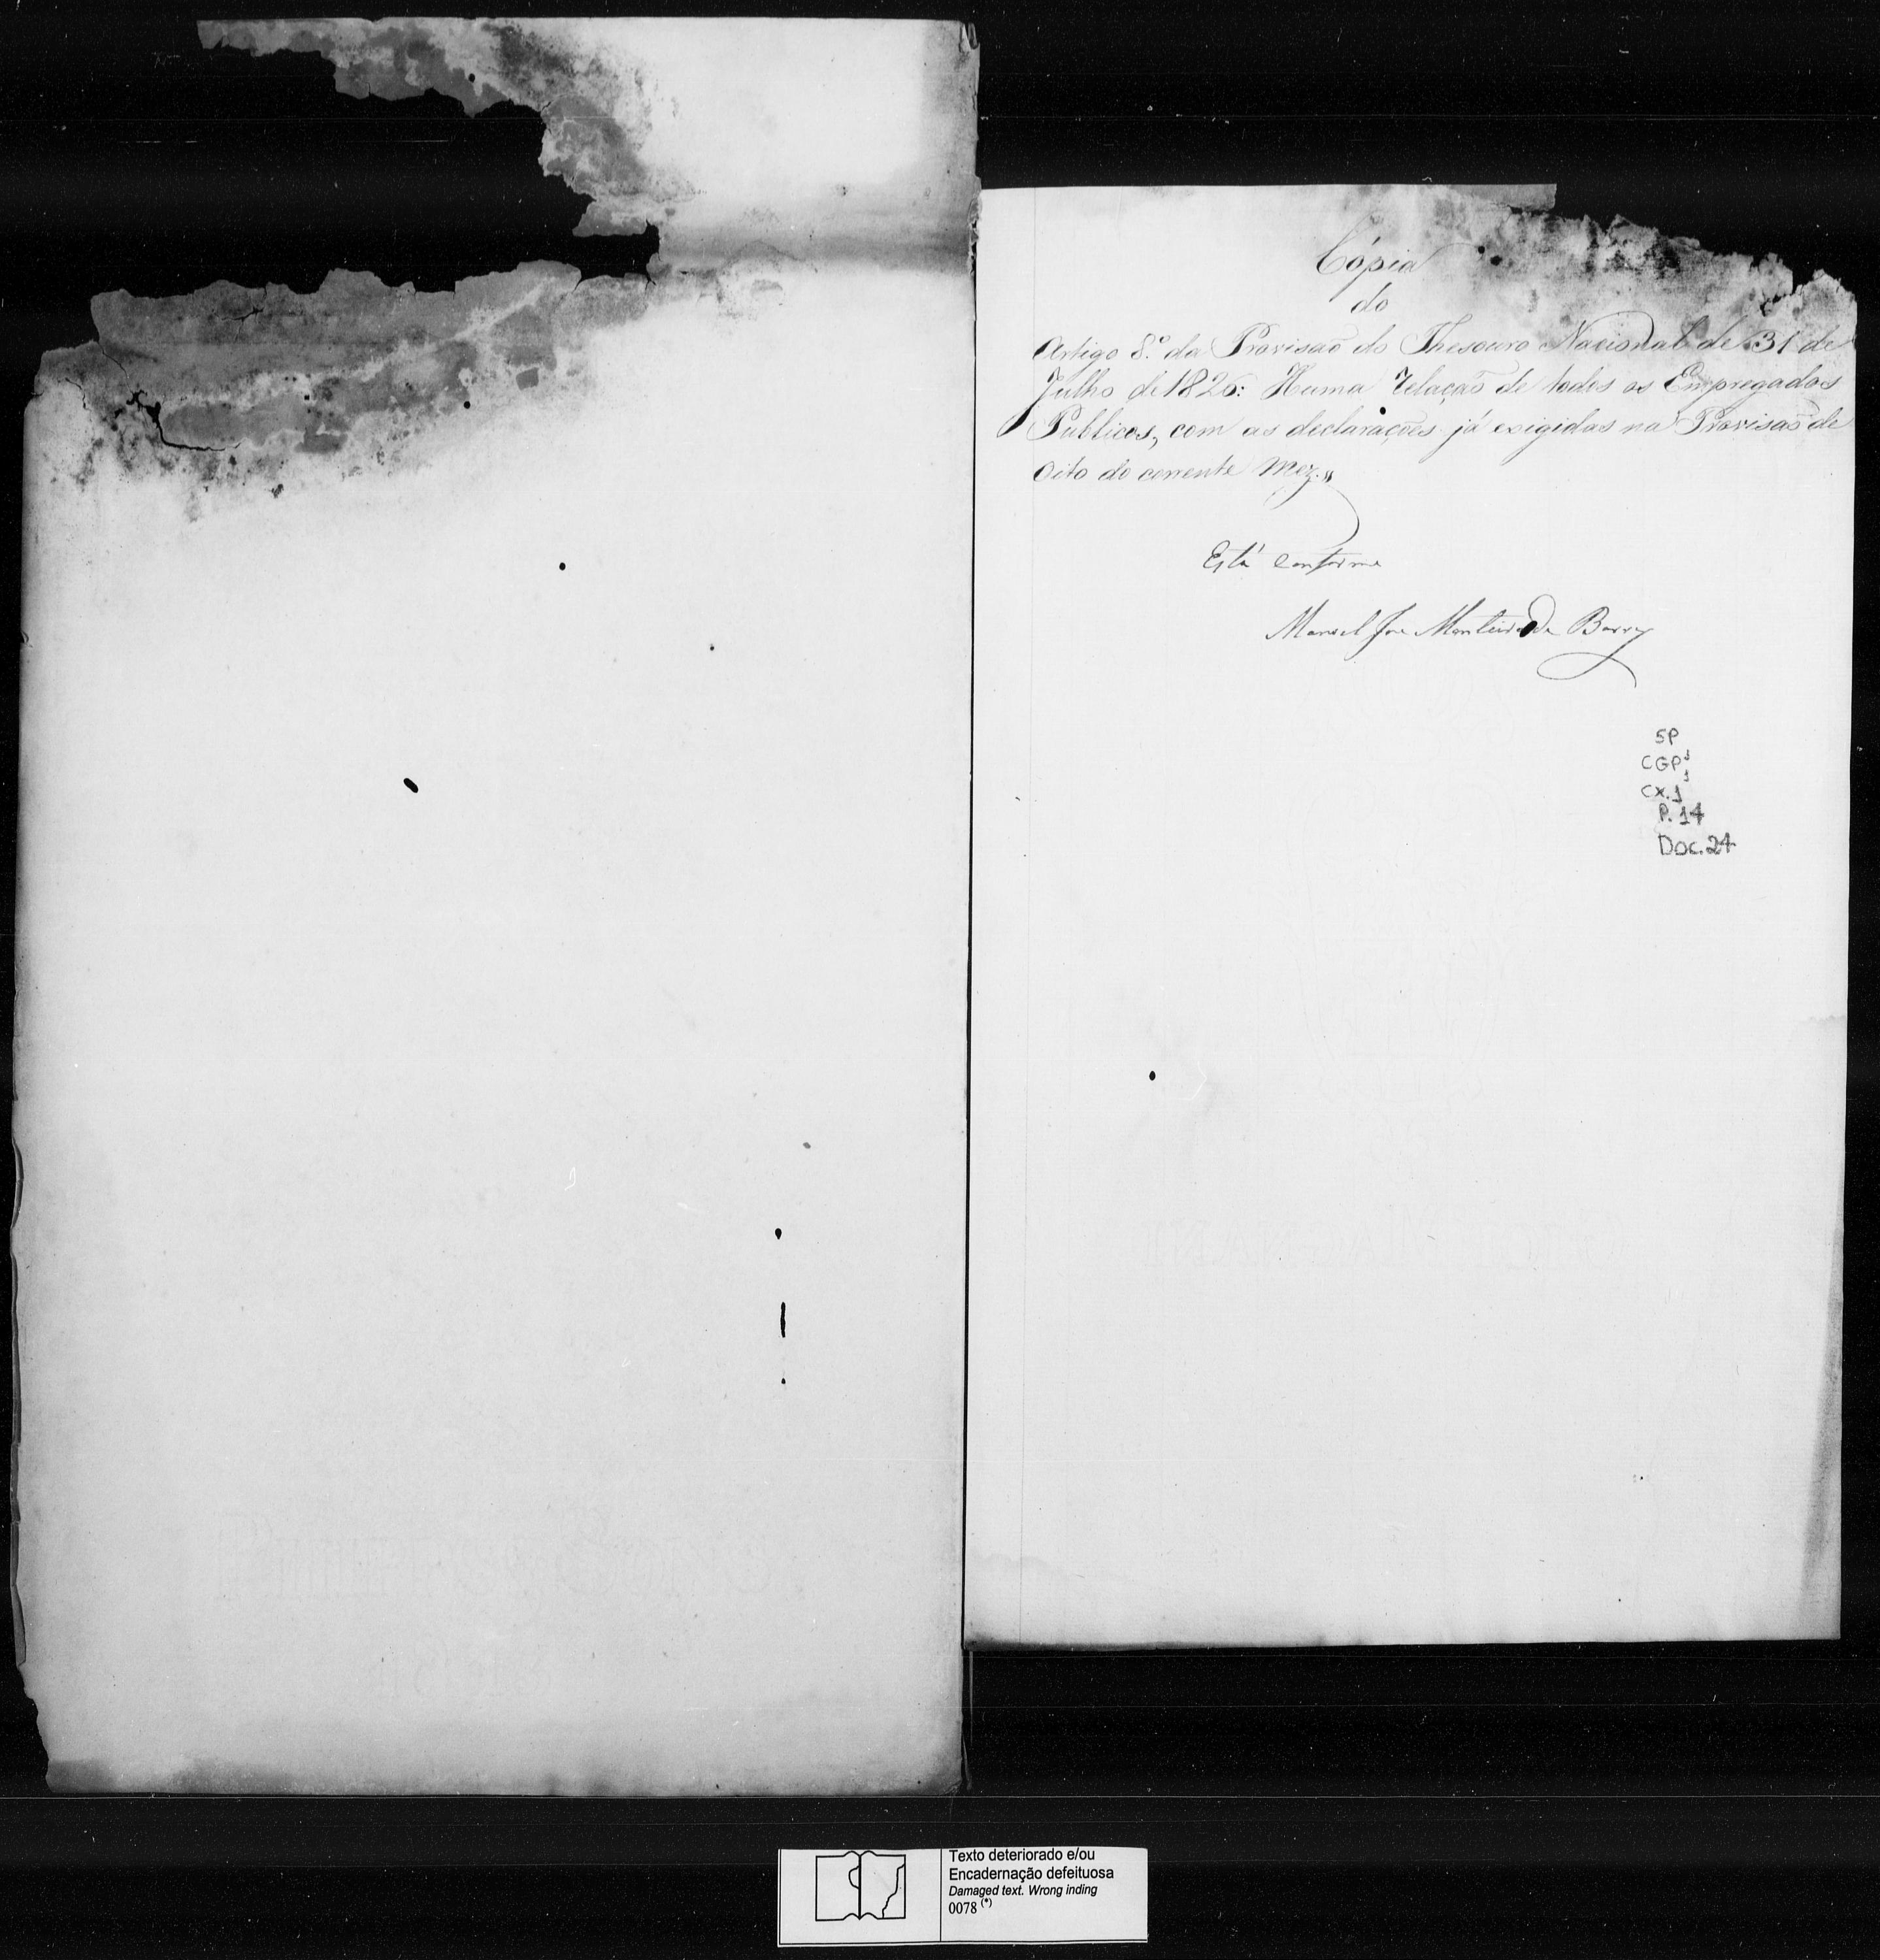 Cópia
do
Artigo 8.º da Provisaõ do Thesouro Nacional de 31 de
Julho de 1826: Huma relaçaõ de todos os Empregados
Publicos, com as declarações já exigidas na Provisaõ de
Oito do corrente Mez.,,
Está conforme
Manoel Joe Monteiro de Barros
SP
CGP
CX. 1
P. 14
Doc. 24
Texto deteriorado e/ou
Encadernação defeituosa
Damaged text. Wrong inding
0078 (*)